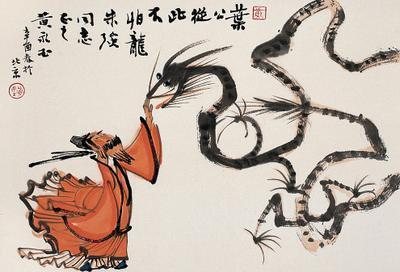 葉公從此不
怕龍
朱
同志
正之
黄永玉
辛酉春於
北京